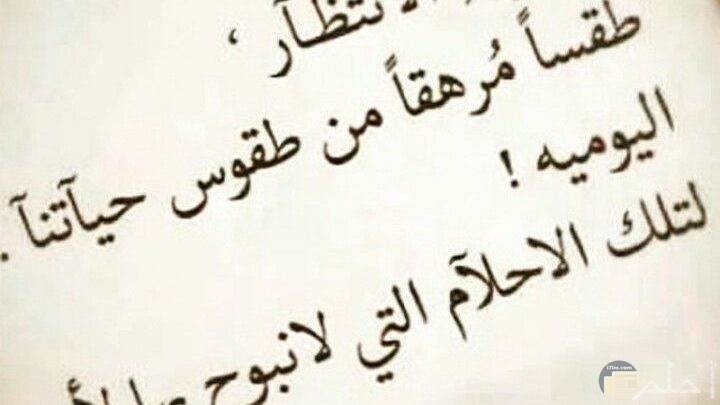 الانتظآر ،
طقساً مُرهقاً من طقوس حيآتنآ .
اليوميه !
لتلك الاحلآم التي لانبوح بها
i7lm.com
حلم